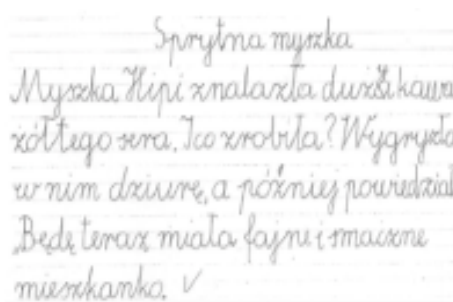 Sprytna myszka
Myszka Hipi znalazła duży kawa
żółtego sera. I co zrobiła? Wygryzła
w nim dziurę, a później powiedział
„Będę teraz miała fajne i smaczne
mieszkanko.